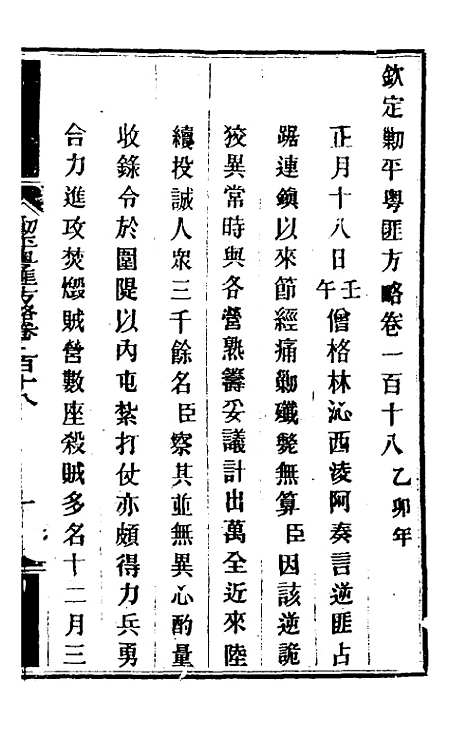 欽定勦平粵匪方略卷一百十八 乙卯年
正月十八日壬午僧格林沁西淩阿奏言逆匪占
踞連鎮以來節經痛勦殲斃無算臣因該逆詭
狡異常時與各營熟籌妥議計出萬全近來陸
續投誠人眾三千餘名臣察其並無異心酌量
收錄令於圍隄以內屯紮打仗亦頗得力兵勇
合力進攻焚燬賊營數座殺賊多名十二月三
勦平粵匪方略卷一百十八
一